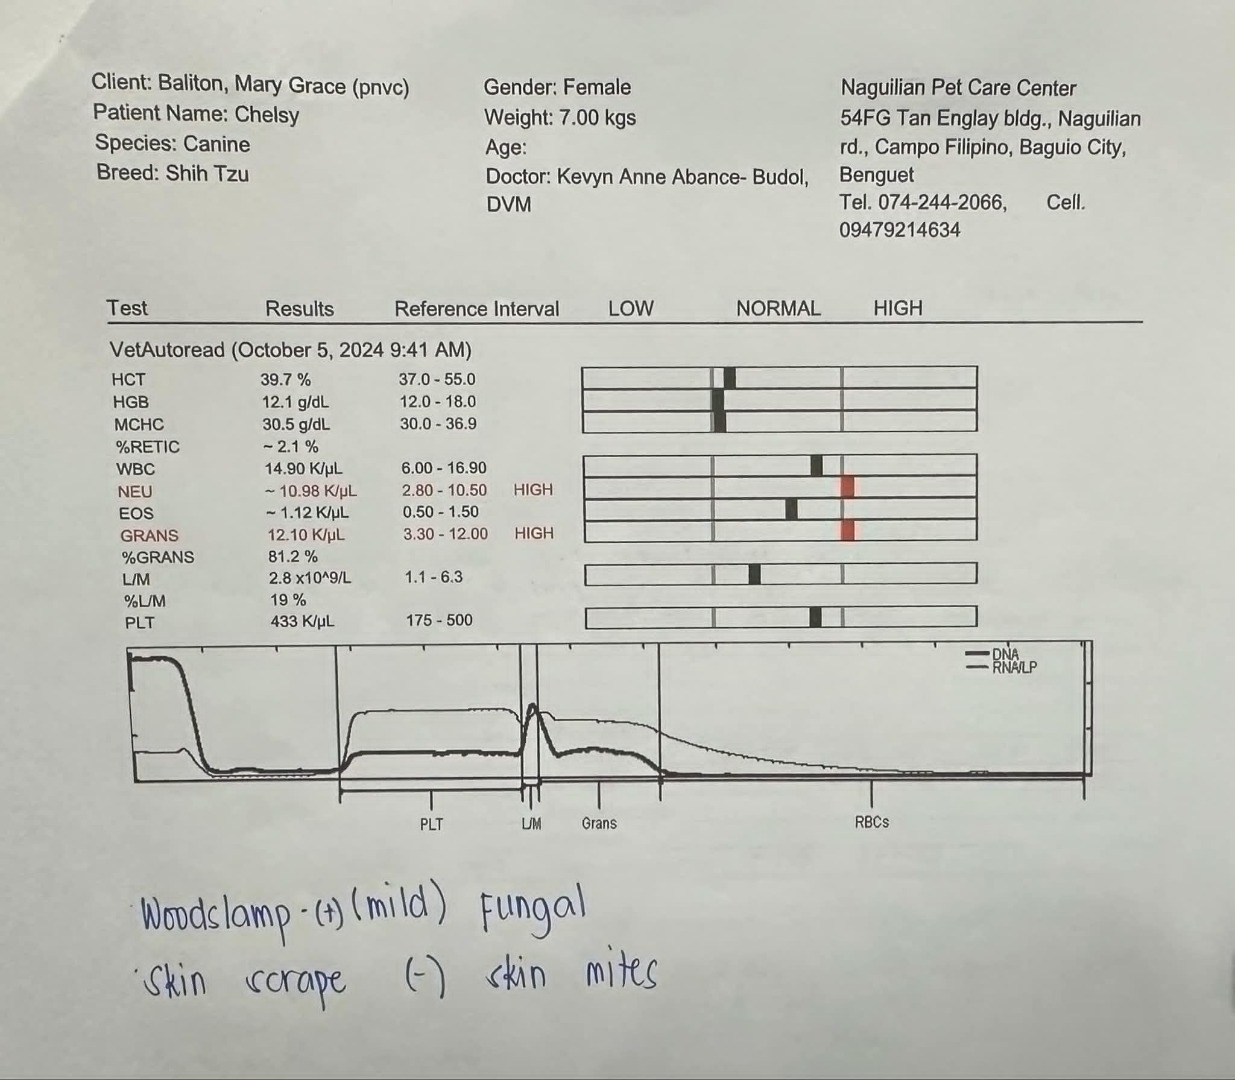 Client: Baliton, Mary Grace (pnvc)
Patient Name: Chelsy
Species: Canine
Breed: Shih Tzu
Gender: Female
Weight: 7.00 kgs
Age:
Doctor: Kevyn Anne Abance- Budol,
DVM
Naguilian Pet Care Center
54FG Tan Englay bldg., Naguilian
rd., Campo Filipino, Baguio City,
Benguet
Tel. 074-244-2066, Cell.
09479214634
Test Results Reference Interval LOW NORMAL HIGH
VetAutoread (October 5, 2024 9:41 AM)
HCT 39.7 % 37.0 - 55.0
HGB 12.1 g/dL 12.0 - 18.0
MCHC 30.5 g/dL 30.0 - 36.9
%RETIC ~ 2.1 %
WBC 14.90 K/µL 6.00 - 16.90
NEU ~ 10.98 K/µL 2.80 - 10.50 HIGH
EOS ~ 1.12 K/µL 0.50 - 1.50
GRANS 12.10 K/µL 3.30 - 12.00 HIGH
%GRANS 81.2 %
L/M 2.8 x10^9/L 1.1 - 6.3
%L/M 19 %
PLT 433 K/µL 175 - 500
DNA
RNA/LP
PLT L/M Grans RBCs
Woodslamp - (+) (mild) Fungal
Skin scrape (-) skin mites